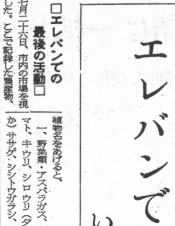 エレバンで
い
□エレバンでの
最後の活動□
七月二十六日、市内の市場を視
した。ここで記録した農産物、
植物名をあげると、
一、野菜類・アスパラガス、
マト、キウリ、シロウリ（タ
か）ササゲ、シシトウガラシ、